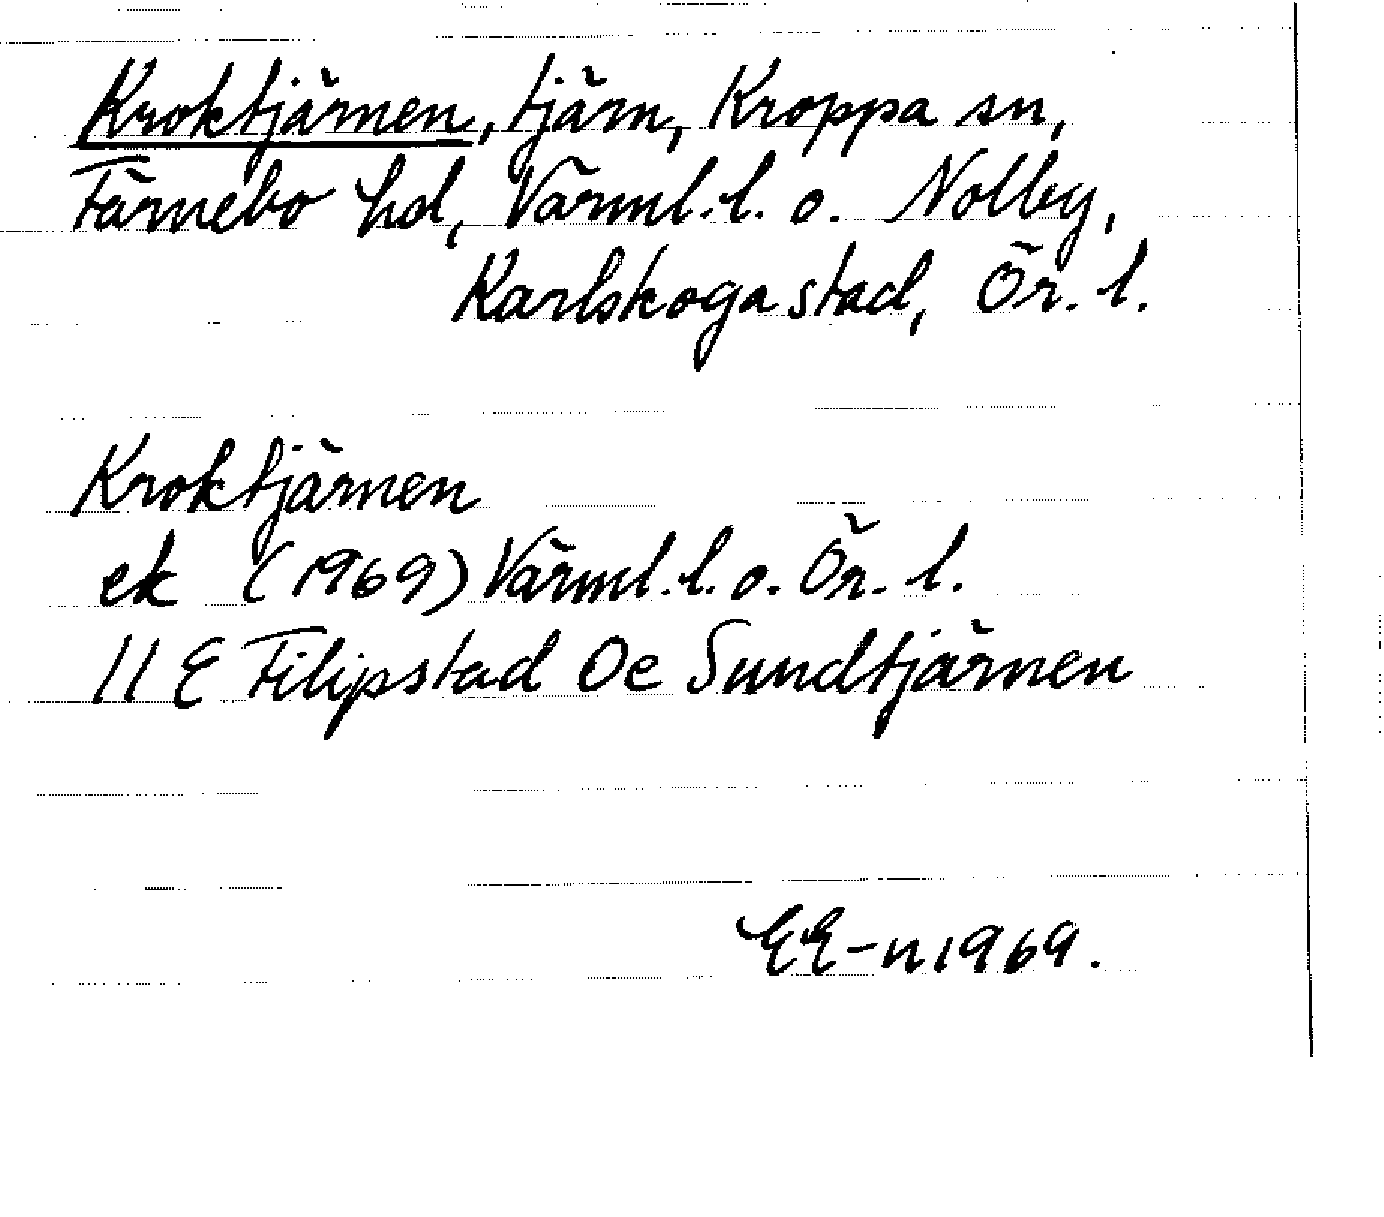 Kroktjärnen, tjärn, Kroppa sn,
Färnebo hd, Värml. l. o. Nolby,
Karlskoga stad, Ör. l.
Kroktjärnen
ek (1969) Värml. l. o. Ör. l.
11 E Filipstad Oe Sundtjärnen
EE-n 1969.